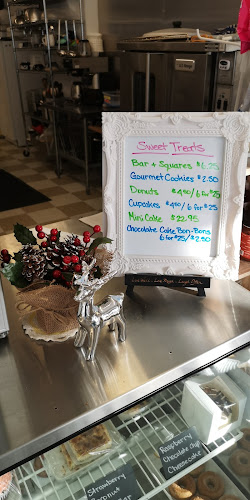 Sweet Treats
Bar + Squares $6.25
Gourmet Cookies $2.50
Donuts $4.50/6 for $25
Cupcakes $4.50/6 for $25
Mini Cake $22.95
Chocolate Cake Bon-Bons
6 for $25/$2.50
Raspberry
Chocolate Chip
Cheesecake